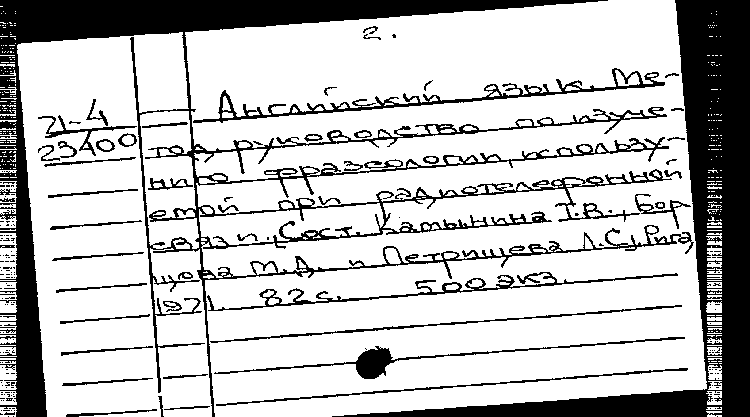 2.
71-4 — Английский язык. Ме-
23400 тод. руководство по изуче-
нию фразеологии, использу-
емой при радиотелефонной
связи. Сост. Камынина Т.В., Бор
щова М.Д. и Петрищева Л.С., Рига,
1971. 82 с. 500 экз.